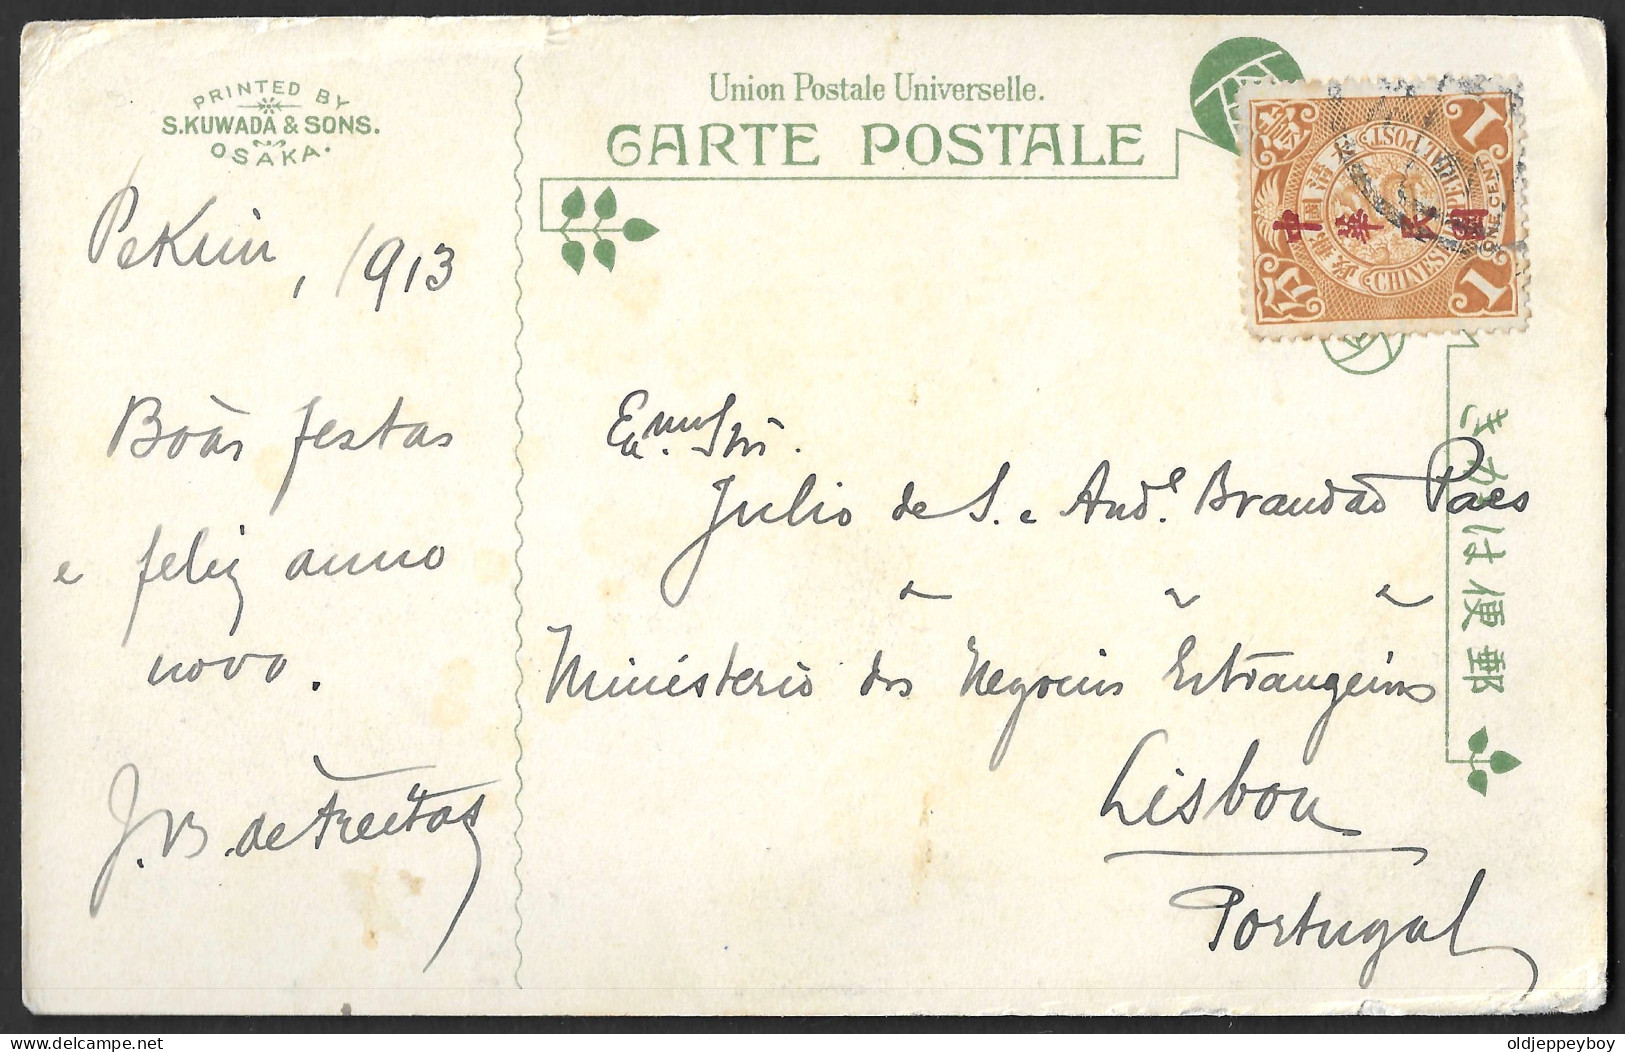 PRINTED BY
S.KUWADA & SONS.
OSAKA.
Pekin, 1913
Boàs festas
e feliz anno
novo.
J.B. de Freitas
Union Postale Universelle.
CARTE POSTALE
1
1
ONE CENT
CHINESE IMPERIAL POST
大清國郵政
壹分
中華民國
Exmos Snrs.
Julio de S. e And.e Brandão Paes
Ministerio dos Negocios Estrangeiros
Lisboa
Portugal
きかは便郵
oldjeppeyboy